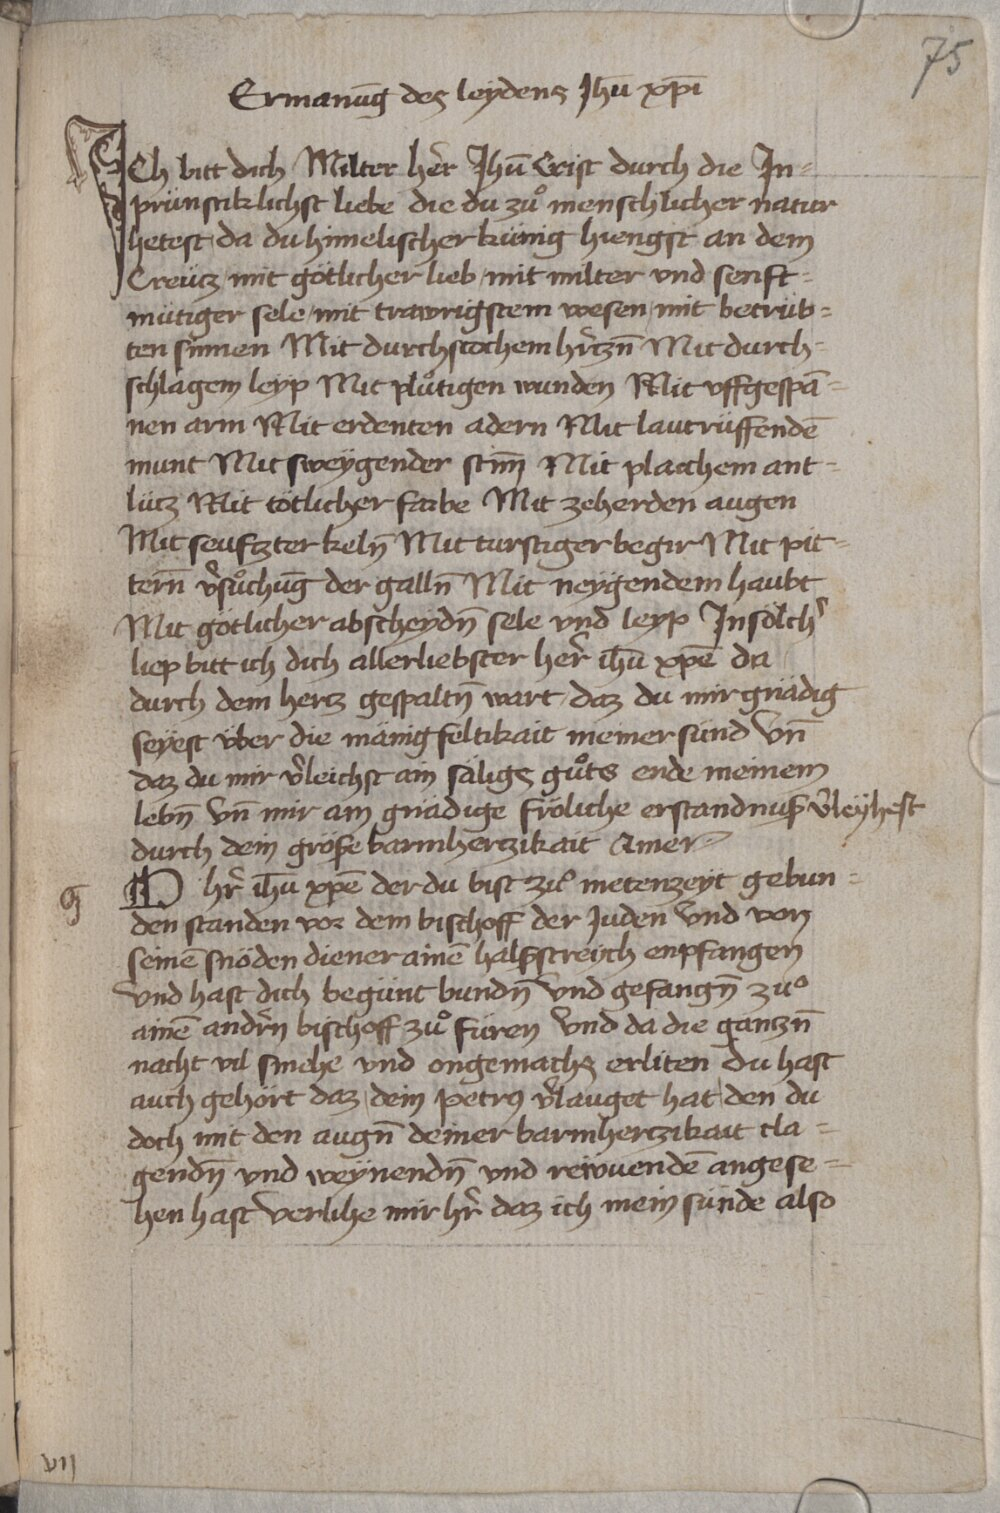 75
Ermanūg des leydens Jhū xp̄i
ICh bitt dich Milter her̄ Jhū Crist durch die In=
prünstiklichst liebe die du zů menschlicher natur
hetest da du himelischer künig hiengst an dem
Creütz mit götlicher lieb mit milter vnd senft=
mütiger sele mit trawrigstem wesen mit betrüb=
ten sinnen Mit durchstochem hr̄tzn̄ Mit durch=
schlagem leyp Mit plůtigen wunden Mit vffgespā=
nen arm Mit erdenten adern Mit lautrüffendē
munt Mit sweygender stim̄ Mit plaichem ant=
lütz Mit tötlicher farbe Mit zeherden augen
Mit seufzter keln̄ Mit turstiger begir Mit pit=
tern̄ v̄sůchūg der galln̄ Mit neygendem haubt
Mit götlicher abscheydn̄ sele vnd leyp In sölch̄
liep bitt ich dich allerliebster her̄ ih̄u xp̄e da
durch dem hertz gespaltn̄ wart daz du mir gnädig
seyest über die mänigfeltikait meiner sünd vn̄
daz du mir v̄leichst ain säligs gůts ende meinem
lebn̄ vn̄ mir ain gnädige fröliche erstandnuß v̄leyhest
durch dein größe barmhertzikait Amen
O hr̄ ih̄u xp̄e der du bist zů metenzeyt gebun=
den standen vor dem bischoff der Juden vnd von
seinē snöden diener ainē halßstreych enpfangen
vnd hast dich begünt bundn̄ vnd gefangn̄ zů
ainē andr̄n bischoff zů füren vnd da die gantzn̄
nacht vil smehe vnd ongemachs erliten du hast
auch gehört daz dein petrꝰ v̄lauget hat den du
doch mit den augn̄ deiner barmhertzikait cla=
gendn̄ vnd weynendn̄ vnd rewuendē angese=
hen hast verlihe mir hr̄ daz ich mein sünde also
VII